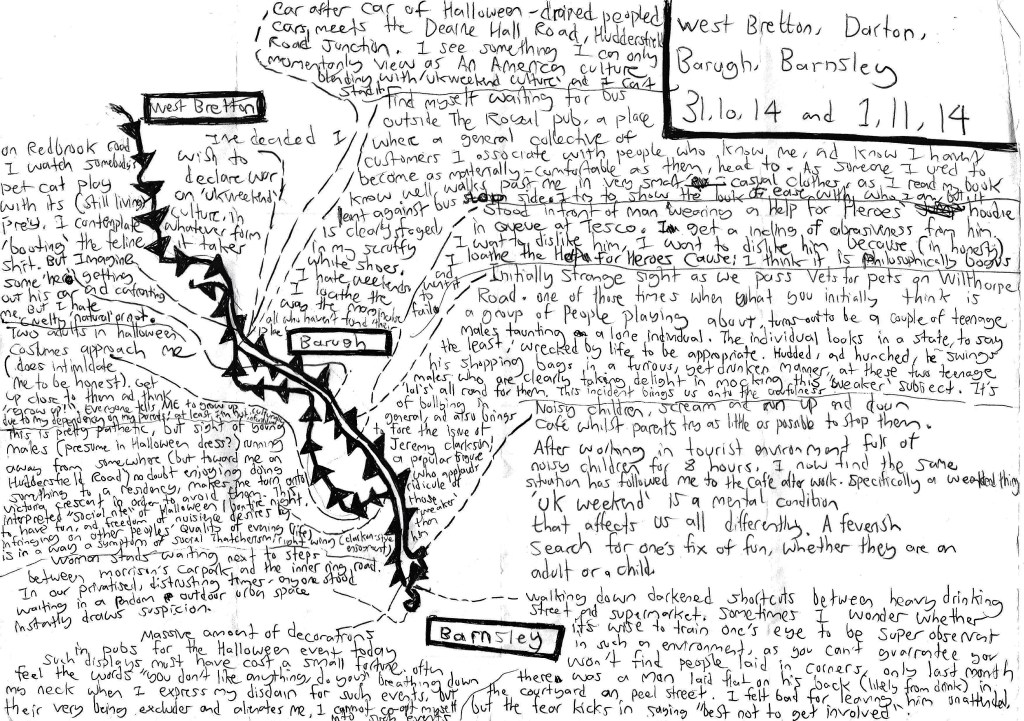 car after car of Halloween-drained peopled
cars, meets the Dearne Hall Road, Huddersfield
Road Junction. I see something I can only
momentarily view as An America culture
blending with 'uk weekend culture' and I can't
stand it
West Bretton, Darton,
Barugh, Barnsley
31,10,14 and 1,11,14
West Bretton
I've decided I
wish to
declare war
on 'ukweekend'
culture, in
whatever form
it takes
on Redbrook road
I watch somebody's
pet cat play
with its (still living)
prey. I contemplate
booting the feline
shit. But Imagine
some getting
out his car and confronting
me. But I hate
cruelty natural or not.
find myself waiting for bus
outside The Royal pub, a place
where a general collective of
customers I associate with people who know me, and know I haven't
become as materially-comfortable as them, head to. As someone I used to
know well, walks past me in very smart casual clothes, as I read my book
leant against bus stop side. I try to show the book at ease with who I am, but it
is clearly staged,
in my scruffy
white shoes.
I hate weekends
I loathe the
way the
all who haven't found their
place
and
want it
to
fail
Stood in front of man wearing a Help for Heroes hoodie
in queue at Tesco. I get a incling of abrasiveness from him.
I want to dislike him, I want to dislike him because, (in honesty)
I loathe the Help for Heroes cause; I think it is philosophically bogus
Initially strange sight as we pass Vets for pets on Wilthorpe
Road. one of those times when what you initially think is
a group of people playing about, turns out to be a couple of teenage
males taunting a lone individual. The individual looks in a state, to say
the least, 'wrecked by life' to be appropriate. Hudded, and hunched, he swings
his shopping bags in a furious, yet drunken manner, at these two teenage
males, who are clearly taking delight in mocking this 'weaker' subject. It's
'lol's' all round for them. This incident brings us onto the awfulness
of bullying in
general, and also brings
to fore the issue of
Jeremy Clarkson,
a popular figure
who applauds
ridicule of
those
'weaker'
than
him
Barugh
Two adults in halloween
costumes approach me
(does intimidate
me to be honest). Get
up close to them and think
'grow up!!'. Everyone tells ME to grow up
due to my dependency on my parents, at least I'm not
This is pretty pathetic, but sight of young
males (presume in Halloween dress?) running
away from somewhere (but toward me on
Huddersfield Road) no doubt enjoying doing
something to a residency, makes me turn onto
Victoria Crescent in order to avoid them. This
interpreted "social rule" of Halloween/bonfire night,
to have fun, and freedom of nuisance desires by
infringing on other peoples quality of evening life,
is in a way a symptom of social Thatcherism/right wing (clarkson-style
enjoyment)
Woman stands waiting next to steps
between morrison's carpark, and the inner ring road.
In our privatised, distrusting times - anyone stood
waiting in a random outdoor urban space
instantly draws suspicion.
Noisy children, scream and run up and down
cafe whilst parents try as little as possible to stop them.
After working in tourist environment full of
noisy children for 8 hours, I now find the same
situation has followed me to the cafe after work. Specifically a weekend thing
'UK weekend' is a mental condition
that affects us all differently. A feverish
search for one's fix of fun, whether they are an
adult or a child.
Barnsley
walking down darkened shortcuts between heavy drinking
street and supermarket. Sometimes I wonder whether
it's wise to train one's eye to be super observant
in such an environment, as you can't guarantee you
won't find people laid in corners, only last month
there was a man laid flat on his back (likely from drink) in
the courtyard on peel street. I felt bad for leaving him unattended,
but the fear kicks in saying "best not to get involved"
Massive amount of decorations
in pubs for the Halloween event today
Such displays must have cost a small fortune. often,
feel the words "you don't like anything, do you" breathing down
my neck when I express my disdain for such events, but
their very being excludes and alienates me, I cannot co-opt myself
into such events